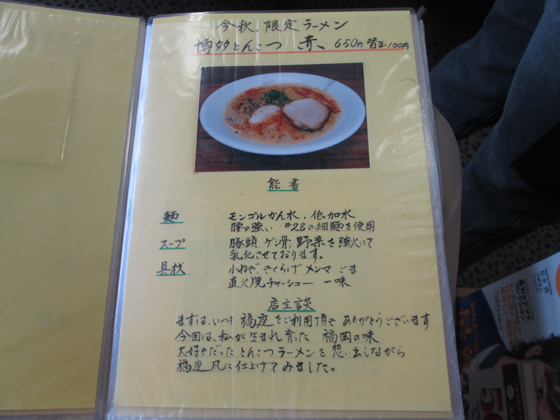 今秋限定ラーメン
博多とんこつ 赤 650円 替玉100円
能書
麺 モンゴルかん水、低加水
腰の強い #28の細麺を使用
スープ 豚頭 ゲンコツ 野菜を強火にて
乳化させております。
具材 小ねぎ きくらげ メンマ ごま
直火焼チャーシュー 一味
店主談
まずは、いつも福座をご利用頂き ありがとうございます
今回は、私が生まれ育った 福岡の味
大好きだったとんこつラーメンを想い出しながら
福座風に仕上げてみました。